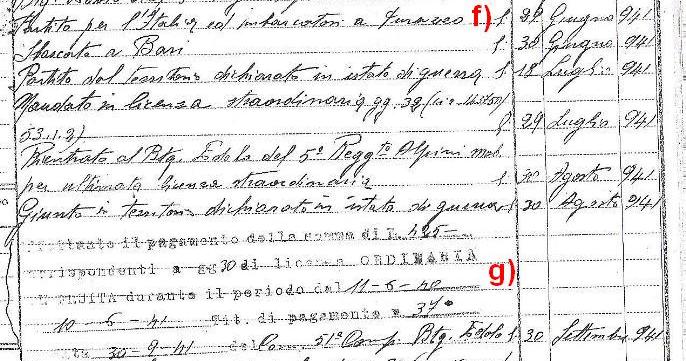 Partito per l'Italia ed imbarcatosi a Durazzo f) lì 29 Giugno 941
Sbarcato a Bari lì 30 Giugno 941
Partito dal territorio dichiarato in istato di guerra lì 18 Luglio 941
Mandato in licenza straordinaria gg. 32
53.1.2) lì 29 Luglio 941
Rientrato al Btg. Edolo del 5° Regg.to Alpini mob.
per ultimata licenza straordinaria lì 30 Agosto 941
Giunto in territorio dichiarato in istato di guerra lì 30 Agosto 941
il pagamento della somma di L. 425
rrispondenti a gg 30 di licenza ORDINARIA
durante il periodo dal 11-6-40 g)
10-6-41 Tit. di pagamento n. 37
30-9-41 51ª Comp. Btg. Edolo lì 30 Settembre 941